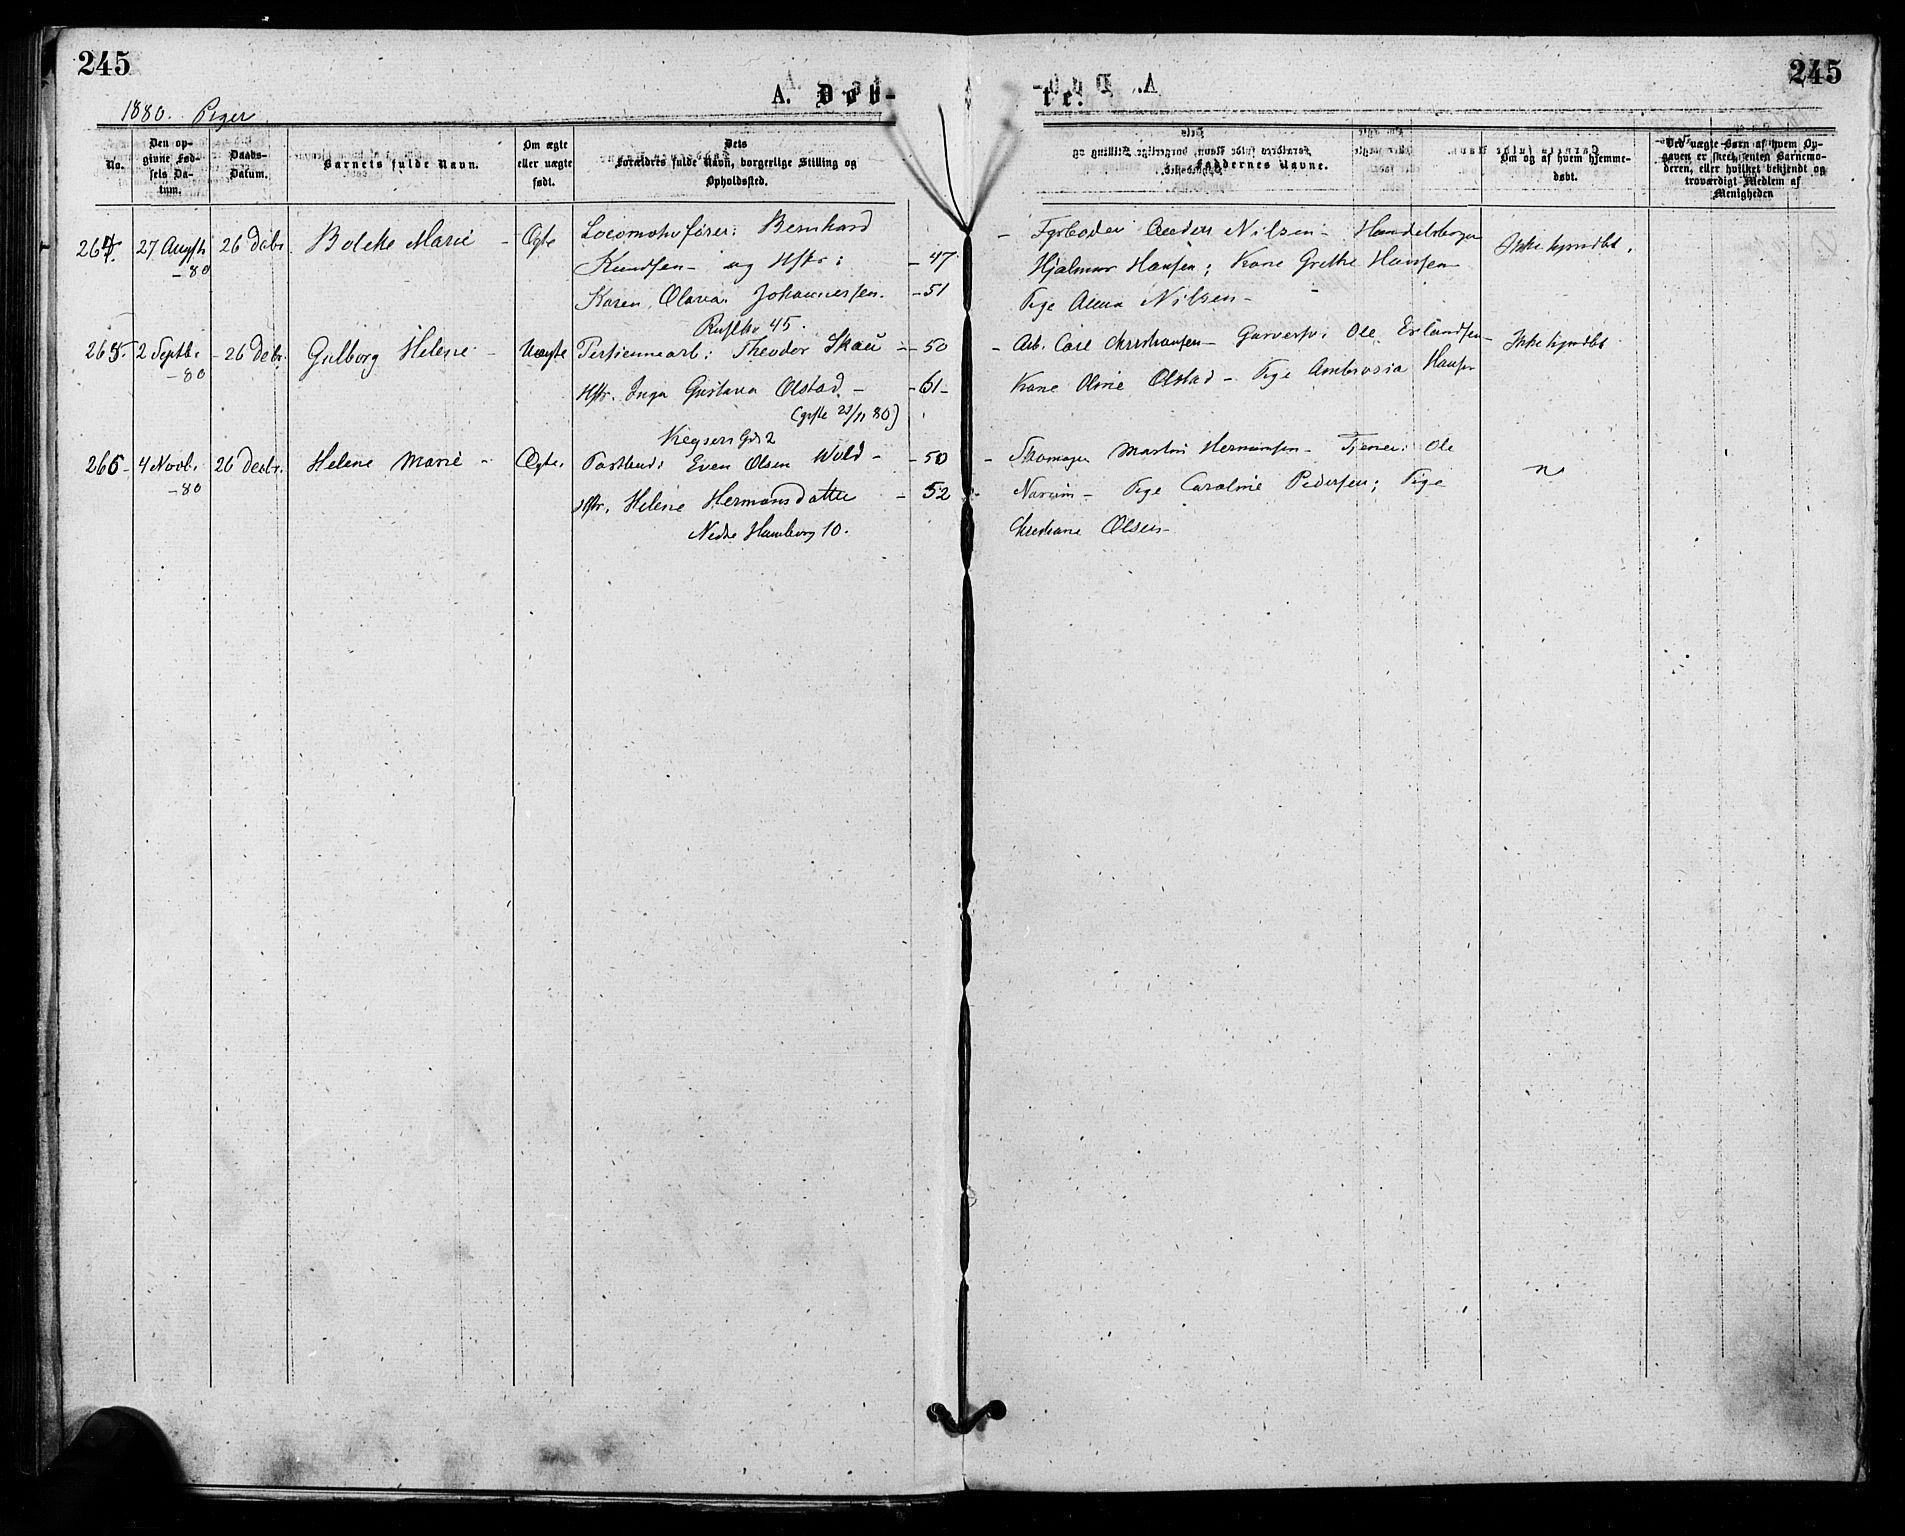 245
245
A. Døb-
te.
1880. Piger
No.
Den op-
givne Fød-
sels Da-
tum.
Daabs-
Datum.
Barnets fulde Navn.
Om ægte
eller uægte
født.
Dets
Forældres fulde Navn, borgerlige Stilling og
Opholdssted.
Faddernes Navne.
Om og af hvem hjemme-
døbt.
Ved uægte Børn af hvem Op-
gaven er skeet, enten Barnemo-
deren, eller hvilket bekjendt og
troværdigt Medlem af
Menigheden
264. 27 Augst. 26 Debr. Bolette Marie - Ægte Locomotivfører: Bernhard
-80 Knudsen - og Hstr: - 47.
Karen Olava Johannessen. - 51
Rufstbr 45.
- Fyrbøder Anders Nilsen - Handelsborger
Hjalmar Hansen; Kone Grethe Hansen
Pige Anna Nilsen -
Ikke hjmdbt.
265. 2 Septb. - 26 Debr. Gulborg Helene - Uægte Theodor Skau - - 50
-80 Hstr. Inga Gustava Olstad - - 61 -
(gifte 21/11 80)
Keysers Gd. 2
- Arb. Carl Christiansen - Garversv: Ole Erlandsen -
Kone Oline Olstad - Pige Ambrosia Hansen
Ikke hjmdbt
266 - 4 Novb. 26 Decbr. Helene Marie - Ægte. Postbud: Even Olsen Wold - - 50
-80 Hstr. Helene Hermansdatter - 52
Nedre Hamborg 10.
- Skomager Martin Hermansen - Tjener: Ole
Narum - Pige Caroline Pedersen; Pige
Christiane Olsen -
n